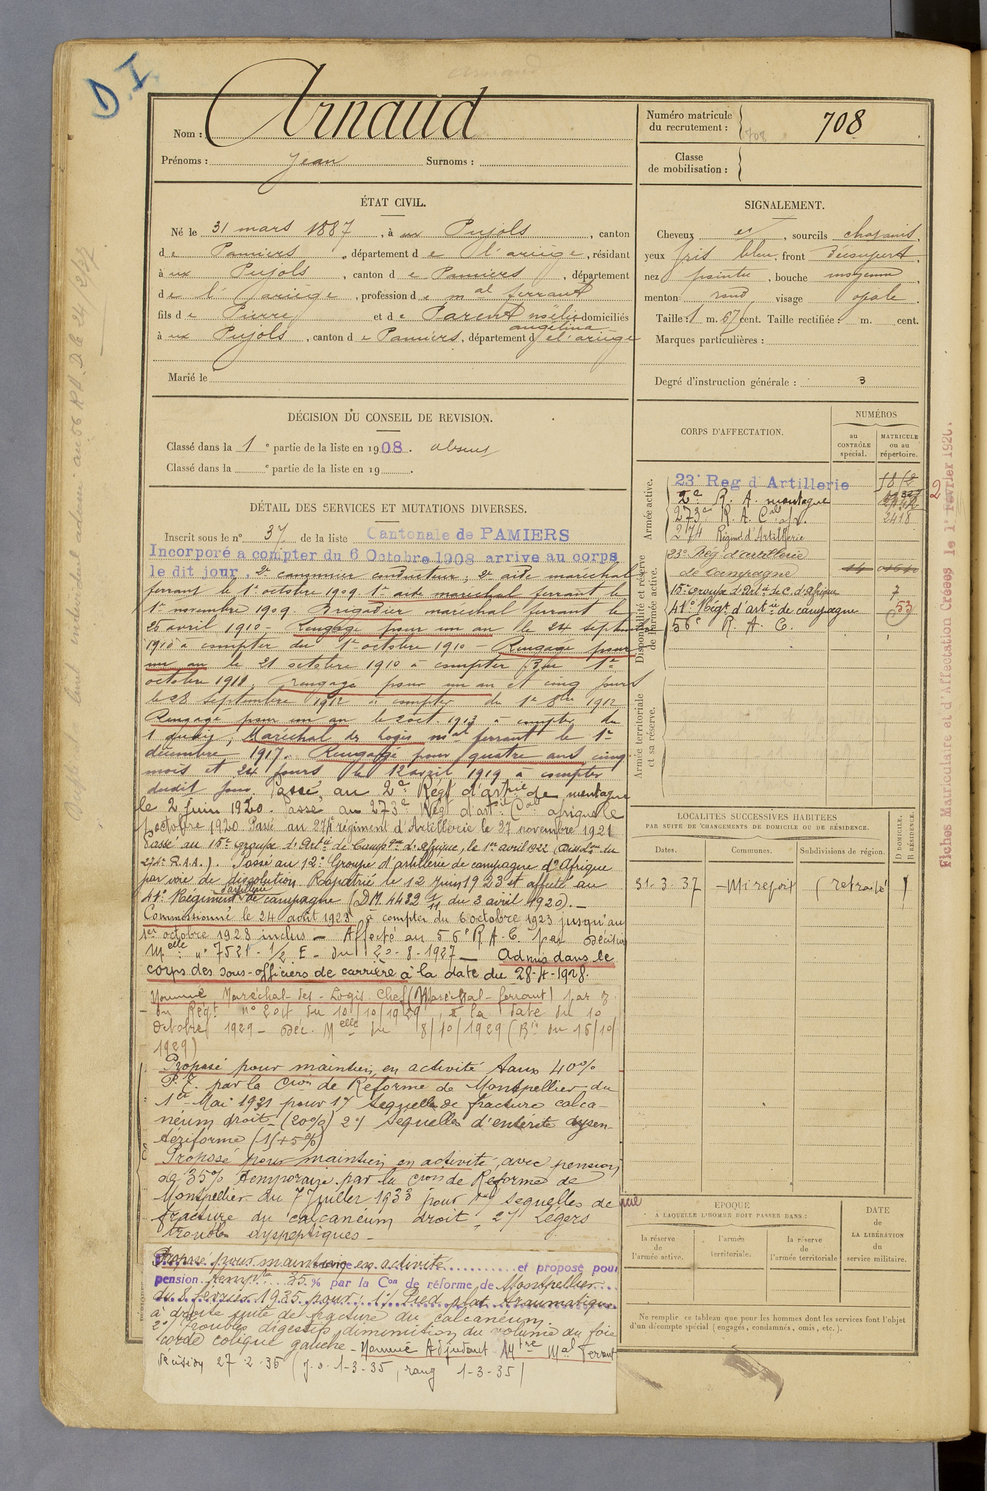 D.I.
Nom : Arnaud
Prénoms : Jean Surnoms :
Numéro matricule
du recrutement : 708
Classe
de mobilisation :
ÉTAT CIVIL.
Né le 31 mars 1887, à Pujols, canton
de Pamiers, département de l'ariège, résidant
à Pujols, canton de Pamiers, département
de l'ariège, profession de mal ferrant
fils de Pierre et de Parent noélie domiciliés
angelina
à Pujols, canton de Pamiers, département de l'ariège
Marié le
SIGNALEMENT.
Cheveux et, sourcils chatains,
yeux gris bleu, front découvert,
nez pointu, bouche moyenne
menton rond, visage ovale
Taille : 1 m. 67 cent. Taille rectifiée : m. cent.
Marques particulières :
Degré d'instruction générale : 3
DÉCISION DU CONSEIL DE REVISION.
Classé dans la 1e partie de la liste en 1908. absent
Classé dans la e partie de la liste en 19 .
CORPS D'AFFECTATION.
NUMÉROS
au
CONTRÔLE
spécial.
MATRICULE
ou au
répertoire.
Armée active.
23e Reg d'Artillerie
2e R. A. montagne
273e R. A. Cne
2418
274 Régime d'Artillerie
Disponibilité et réserve
de l'armée active.
23e Rég. d'artillerie
de campagne
15e groupe d'Artie de C. d'Afrique 7
41e Régt d'artie de campagne 53
56e R. A. C.
Armée territoriale
et sa réserve.
DÉTAIL DES SERVICES ET MUTATIONS DIVERSES.
Inscrit sous le n° 37 de la liste Cantonale de PAMIERS
Incorporé à compter du 6 Octobre 1908 arrive au corps
le dit jour, 2e canonnier conducteur, 2e aide maréchal
ferrant le 1er octobre 1909. 1er aide maréchal ferrant le
1er novembre 1909. Brigadier maréchal ferrant le
25 avril 1910 - Rengagé pour un an le 24 septembre
1910 à compter du 1er octobre 1910 - Rengagé pour
un an le 21 octobre 1910 à compter du 1er
octobre 1911, rengagé pour un an et cinq jours
le 28 septembre 1912 à compter du 1er 8bre 1912
Rengagé pour un an le 2 oct. 1913 à compter du
1 dudit, Maréchal des logis mal ferrant le 1er
décembre 1917. Rengagé pour quatre ans cinq
mois et 24 jours le 12 avril 1919 à compter
dudit jour. Passé au 2e Régt d'artie de montagne
le 2 juin 1920. Passé au 273e Régt d'artie Cne afrique le
1 octobre 1920 Passé au 274 régiment d'Artillerie le 27 novembre 1921
Passé au 15e groupe d'Artie de Campne d'Afrique, le 1er avril 1922 (Diss.on du
274e R.A.A.). Passé au 12e Groupe d'artillerie de campagne d'Afrique
par voie de dissolution. Rapatrié le 12 juin 1923 et affecté au
41e Régiment d'artillerie de campagne (DM 4482 1/11 du 3 avril 1920). -
Commissionné le 24 août 1923 à compter du 6 octobre 1923 jusqu'au
1er octobre 1928 inclus - Affecté au 56e R.A.C. par Décision
Melle n° 7521 - 1/2 E - du 20-8-1927 - Admis dans le
corps des sous-officiers de carrière à la date du 28-4-1928.
Nommé Maréchal-des-Logis Chef (Maréchal-ferrant) par
du Régt n° du 10/10/1929, à la date du 10
Octobre 1929 - Déc. Melle du 8/10/1929 (Bin du 16/10/
1929)
Proposé pour maintien en activité taux 40%
P.T. par la Cion de Réforme de Montpellier du
1er Mai 1931 pour 1°/ Sequelle de fracture calca-
néum droit - (20%) 2°/ Sequelle d'entérite dysen
tériforme (1(+5%)
Proposé pour maintien en activité, avec pension
de 35% temporaire par la Cion de Réforme de
Montpellier du 7 juillet 1933 pour 1er sequelles de
fracture du calcaneum droit - 2°/ Legers
troubles dyspeptiques -
Proposé pour maintien en activité et proposé pour
pension temp. 35% par la Con de réforme de Montpellier
du 8 Février 1935 pour : 1° Pied plat traumatique
à droite suite de fracture du calcaneum.
2°/ Troubles digestifs diminution du volume du foie
corde colique gauche - Nommé Adjudant Mtre Mal Ferrant
Décision 27-2-35 (J.O. 1-3-35, rang 1-3-35)
LOCALITÉS SUCCESSIVES HABITÉES
PAR SUITE DE CHANGEMENTS DE DOMICILE OU DE RÉSIDENCE.
Dates. Communes. Subdivisions de région.
D DOMICILE.
R RÉSIDENCE.
31-3-37 Mirepoix (retraité)
ÉPOQUE
À LAQUELLE L'HOMME DOIT PASSER DANS :
la réserve
de
l'armée active.
l'armée
territoriale.
la réserve
de
l'armée territoriale
DATE
de
LA LIBÉRATION
du
service militaire.
Ne remplir ce tableau que pour les hommes dont les services font l'objet
d'un décompte spécial (engagés, condamnés, omis, etc.).
Fiches Matriculaire et d'Affectation Créées le 1er Février 1920.